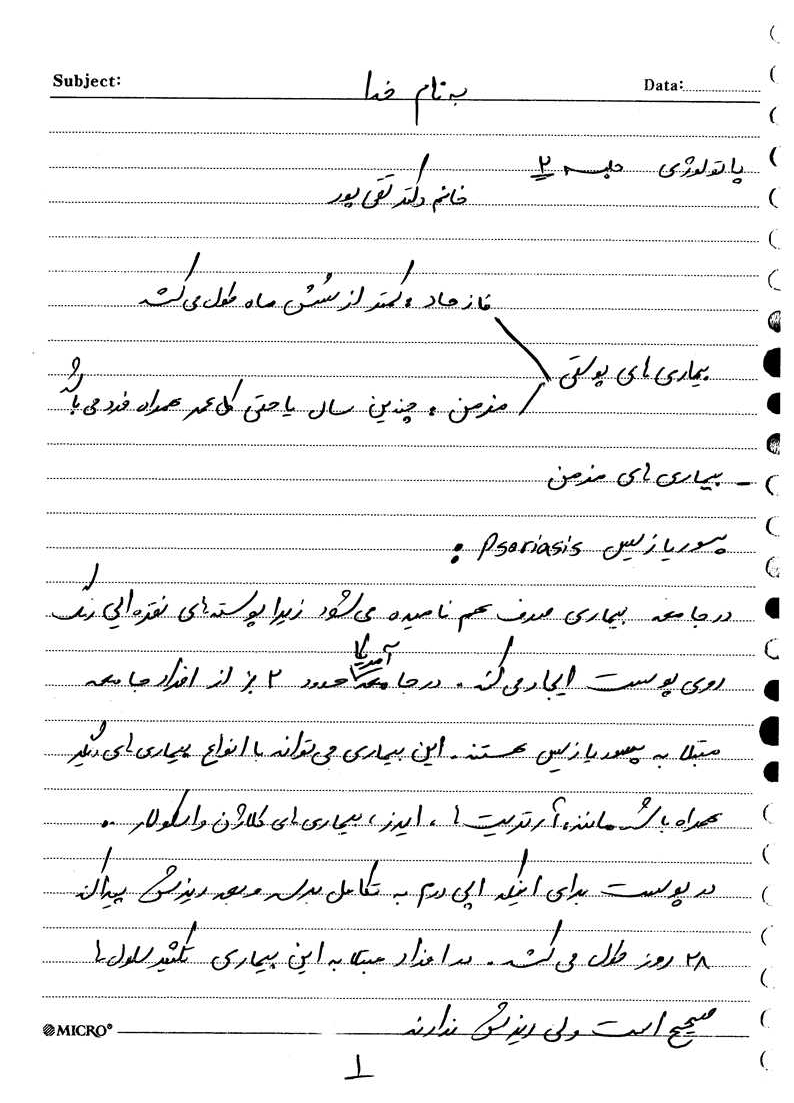 Subject:
به نام خدا
Data:
پاتولوژی جلسه ۲
خانم دکتر تقی پور
فاز حاد: کمتر از شش ماه طول می کشد
بیماری های پوستی
مزمن: چندین سال یا حتی کل عمر همراه فرد می باشد
- بیماری های مزمن
پسوریازیس Psoriasis :
در جامعه بیماری صدف هم نامیده می شود زیرا پوسته های نقره ای رنگ
روی پوست ایجاد می کند. در جامعه آمریکا حدود ۲٪ از افراد جامعه
مبتلا به پسوریازیس هستند. این بیماری می تواند با انواع بیماری های دیگر
همراه باشد مانند: آرتریت ها، ایدز، بیماری های کلاژن واسکولار ..
در پوست برای اینکه اپی درم به تکامل برسد و بعد ریزش پیدا کند
۲۸ روز طول می کشد. در افراد مبتلا به این بیماری تکثیر سلول ها
صحیح است ولی ریزش ندارند
MICRO®
1